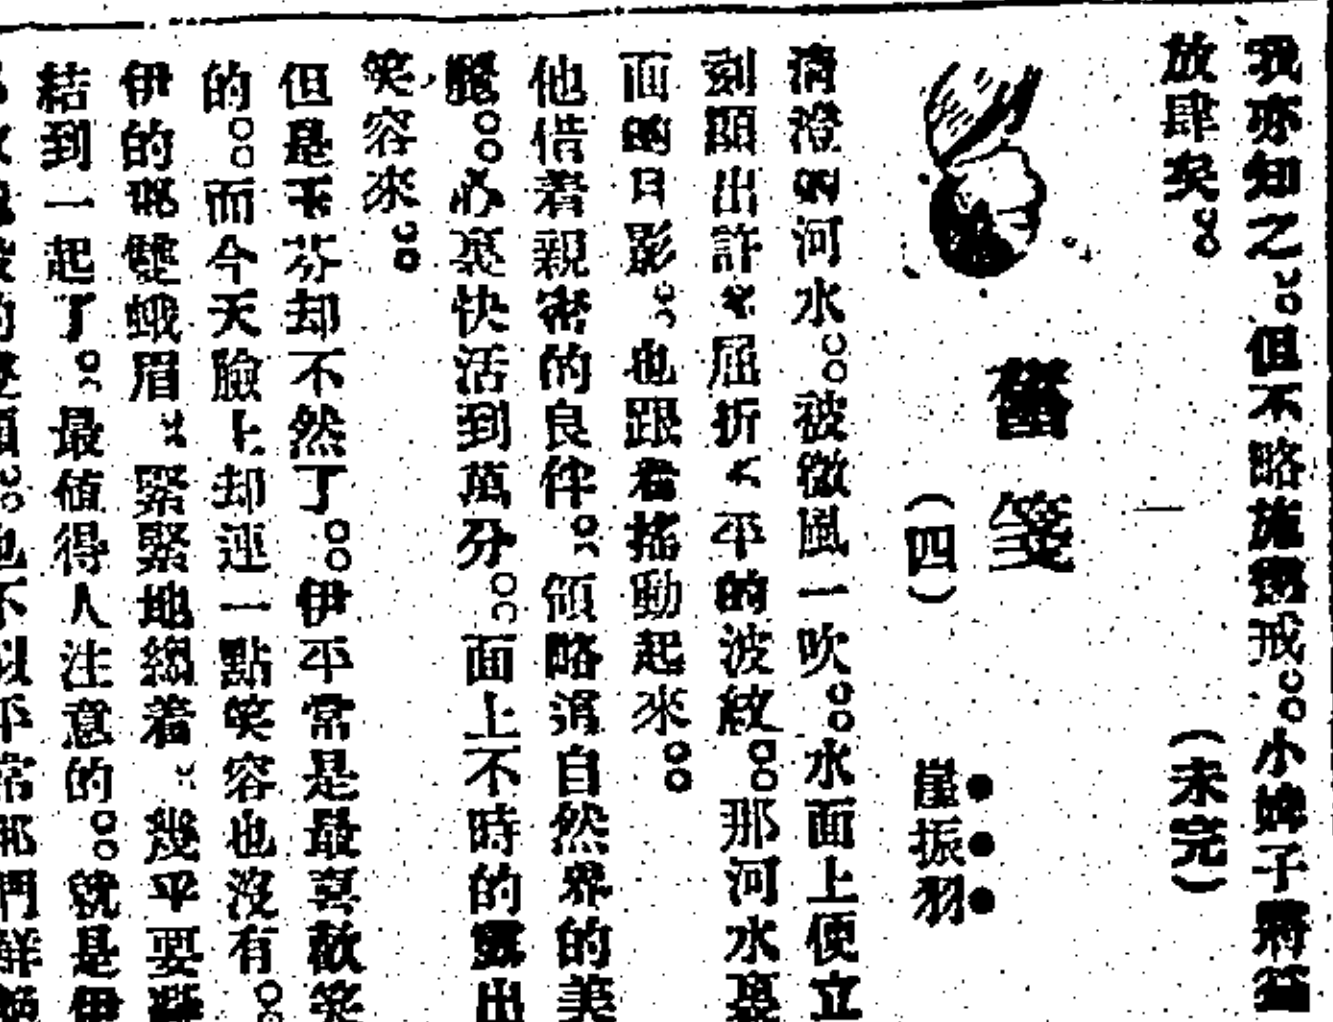 我亦知之。但不略施懲戒。小婢子將益
放肆矣。
（未完）
舊箋
（四）
崖振羽
清澄的河水。被微風一吹。水面上便立
刻顯出許多屈折不平的波紋。那河水裏
面的月影。也跟着搖動起來。
他偕着親密的良伴。領略滿自然界的美
麗。心裏快活到萬分。面上不時的露出
笑容來。
但是玉芬却不然了。伊平常是最喜歡笑
的。而今天臉上却連一點笑容也沒有。
伊的那雙蛾眉。緊緊地縐着。幾乎要
結到一起了。最値得人注意的。就是伊